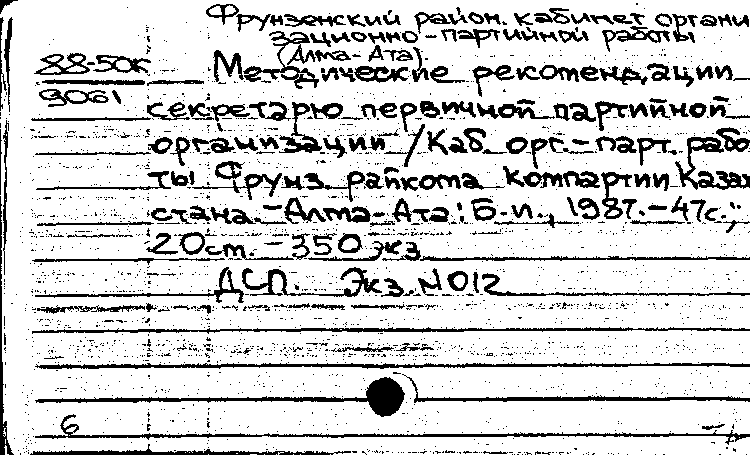 Фрунзенский район. кабинет органи
зационно-партийной работы
(Алма-Ата).
88-50к
9061
Методические рекомендации
секретарю первичной партийной
организации / Каб. орг.-парт. рабо
ты Фрунз. райкома Компартии Казах
стана. - Алма-Ата: Б.и., 1987. - 47с.;
20см. - 350 экз.
ДСП. Экз. N012
6